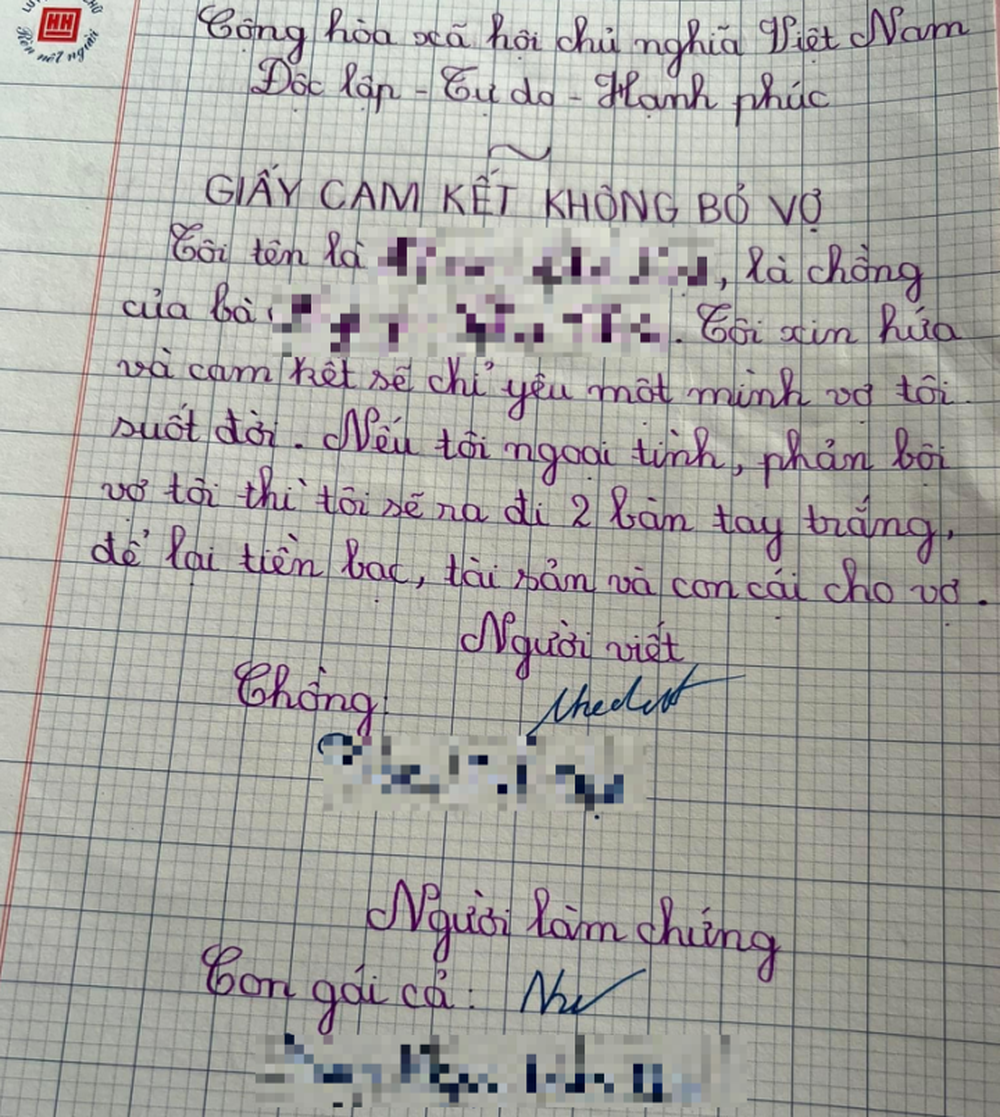 HH
Rèn nét người
Cộng hòa xã hội chủ nghĩa Việt Nam
Độc lập - Tự do - Hạnh phúc
GIẤY CAM KẾT KHÔNG BỎ VỢ
Tôi tên là , là chồng
của bà . Tôi xin hứa
và cam kết sẽ chỉ yêu một mình vợ tôi
suốt đời. Nếu tôi ngoại tình, phản bội
vợ tôi thì tôi sẽ ra đi 2 bàn tay trắng,
để lại tiền bạc, tài sản và con cái cho vợ.
Người viết
Chồng:
Người làm chứng
Con gái cả: Như